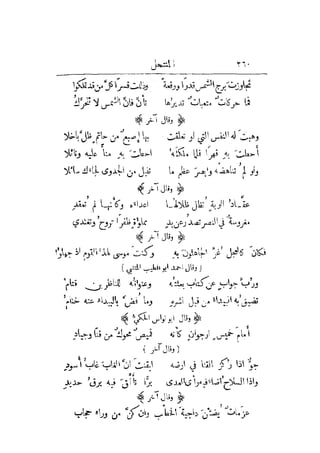 ٣٦٠ المنتحل
تجاوزت برج الشمس قدرا ورفعة وذلت قسرا كل من قد تملكوا
فما حركات متعبات تديرها تأن فان الشمس لا تتحرك
﴿ وقال آخر ﴾
وهبت له النفس التي لو تعلقت بها إصبع من حاتم ظل باخلا
أحطت به قهرا فلما ملكته احطت به منا عليه ونائلا
ولو لم تناهضه وابصر عظم ما تنيل من الجدوى لجاءك سائلا
﴿ وقال آخر ﴾
عقاد الوية تظل ظلالها اعداء وكأنها لم تعقد
مغروسة في النصر تصدر عن يد مملوءة ظفرا تروح وتغتدي
﴿ وقال آخر ﴾
فكان كالعجل غر الجاهلون به وكنت موسى لهذا القوم اذ جهلوا
( وقال احمد ابو الطيب المتنبي )
ورب جواب عن كتاب بعثته وعنوانه للناظرين قتام
تضيق به البيداء من قبل نشره وما فض بالبيداء عنه ختام
﴿ وقال ابو نواس الحكمي ﴾
أمام خميس ارجوان كأنه قميص محوك من قنا وجياد
( وقال آخر )
جو اذا ركز القنا في ارضه ايقنت ان الغاب غاب أسود
واذا السلاح أضاء فيه رأى العدى برا تألق فيه برق حديد
﴿ وقال آخر ﴾
عزمات يضئن داجية الخطب وان كن من وراء حجاب